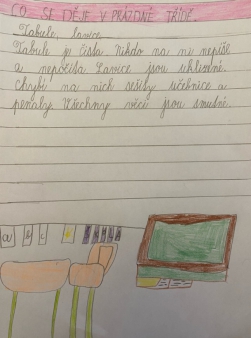 CO SE DĚJE V PRÁZDNÉ TŘÍDĚ
Tabule, lavice
Tabule je čistá. Nikdo na ni nepíše
a nepočítá. Lavice jsou uklizené.
Chybí na nich sešity, učebnice a
penály. Všechny věci jsou smutné.
a